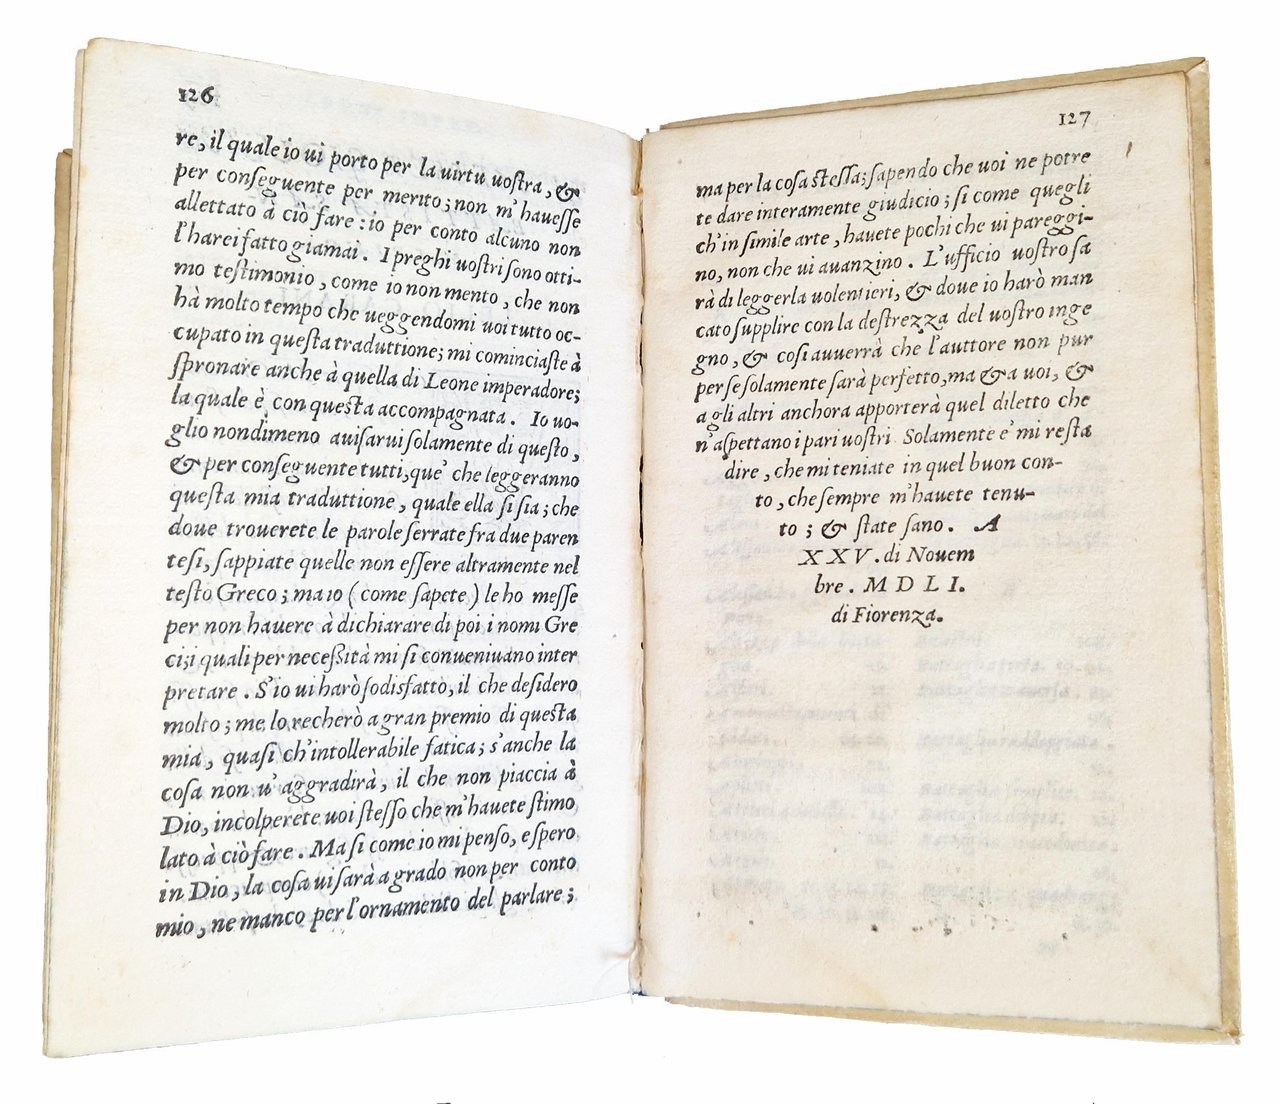 126
re, il quale io ui porto per la uirtu uostra, &
per conseguente per merito; non m'hauesse
allettato à ciò fare: io per conto alcuno non
l'harei fatto giamai. I preghi uostri sono otti-
mo testimonio, come io non mento, che non
hà molto tempo che ueggendomi uoi tutto oc-
cupato in questa traduttione; mi cominciaste à
spronare anche à quella di Leone imperadore;
la quale è con questa accompagnata. Io uo-
glio nondimeno auisarui solamente di questo,
& per conseguente tutti, que' che leggeranno
questa mia traduttione, quale ella si sia; che
doue trouerete le parole serrate fra due paren
tesi, sappiate quelle non essere altramente nel
testo Greco; ma io (come sapete) le ho messe
per non hauere à dichiarare di poi i nomi Gre
ci; i quali per necessità mi si conueniuano inter
pretare. S'io ui harò sodisfatto, il che desidero
molto; me lo recherò a gran premio di questa
mia, quasi ch'intollerabile fatica; s'anche la
cosa non u'aggradirà, il che non piaccia à
Dio, incolperete uoi stesso che m'hauete stimo
lato à ciò fare. Ma si come io mi penso, e spero
in Dio, la cosa ui sarà a grado non per conto
mio, ne manco per l'ornamento del parlare;
127
ma per la cosa stessa; sapendo che uoi ne potre
te dare interamente giudicio; si come quegli
ch'in simile arte, hauete pochi che ui pareggi-
no, non che ui auanzino. L'ufficio uostro sa
rà di leggerla uolentieri, & doue io harò man
cato supplire con la destrezza del uostro inge
gno, & cosi auuerrà che l'auttore non pur
per se solamente sarà perfetto, ma & a uoi, &
a gli altri anchora apporterà quel diletto che
n'aspettano i pari uostri. Solamente e' mi resta
dire, che mi teniate in quel buon con-
to, che sempre m'hauete tenu-
to; & state sano. A
XXV. di Nouem
bre. MDLI.
di Fiorenza.